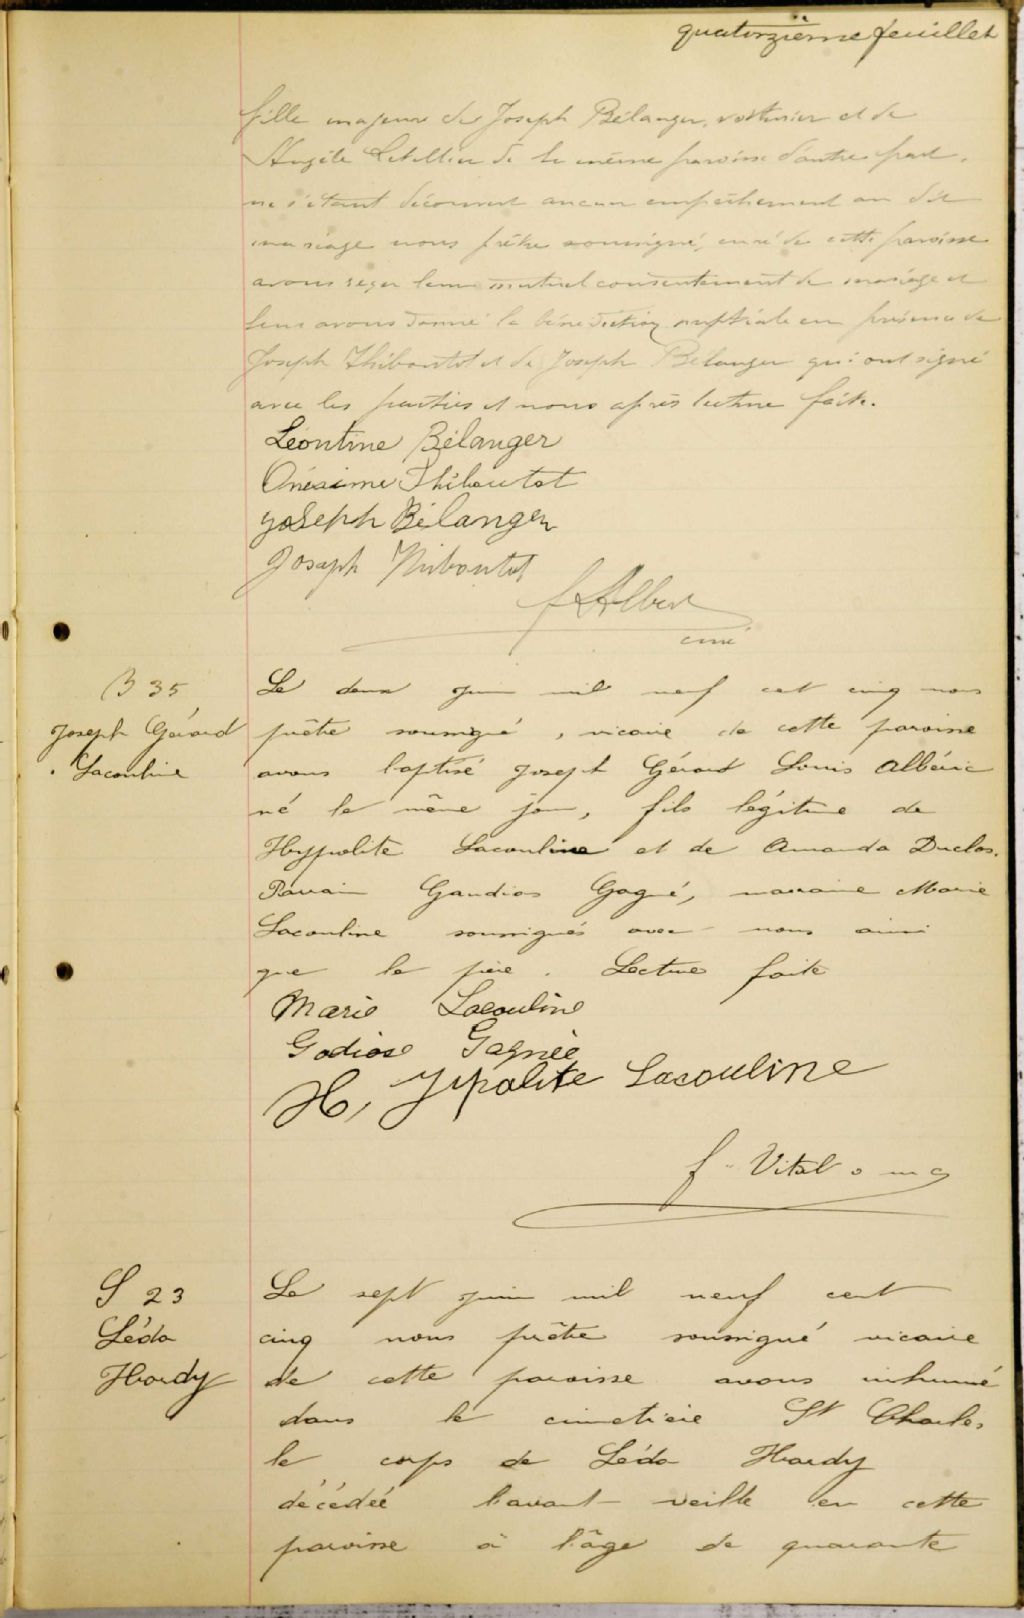 quatorzième feuillet
fille majeure de Joseph Bélanger, voiturier et de
Angèle Letellier de la même paroisse d'autre part,
ne s'étant découvert aucun empêchement au dit
mariage nous prêtre soussigné, curé de cette paroisse
avons reçu leur mutuel consentement de mariage et
leur avons donné la bénédiction nuptiale en présence de
Joseph Thiboutot et de Joseph Bélanger qui ont signé
avec les parties et nous après lecture faite.
Léontine Bélanger
Onésime Thiboutot
Joseph Bélanger
Joseph Thiboutot
f Albert
curé
B 35
Joseph Gérard
Lacouline
Le deux juin mil neuf cet cinq nous
prêtre soussigné, vicaire de cette paroisse
avons baptisé Joseph Gérard Louis Albéric
né le même jour, fils légitime de
Hyppolite Lacouline et de Amanda Duclos.
Parrain Gaudios Gagné, marraine Marie
Lacouline soussignés avec nous ainsi
que le père. Lecture faite
Marie Lacouline
Godiose Gagnée
H, Ypolite Lacouline
f. Vital
S 23
Léda
Hardy
Le sept juin mil neuf cent
cinq nous prêtre soussigné vicaire
de cette paroisse avons inhumé
dans le cimetière St Charles
le corps de Léda Hardy
décédée l'avant-veille en cette
paroisse à l'âge de quarante